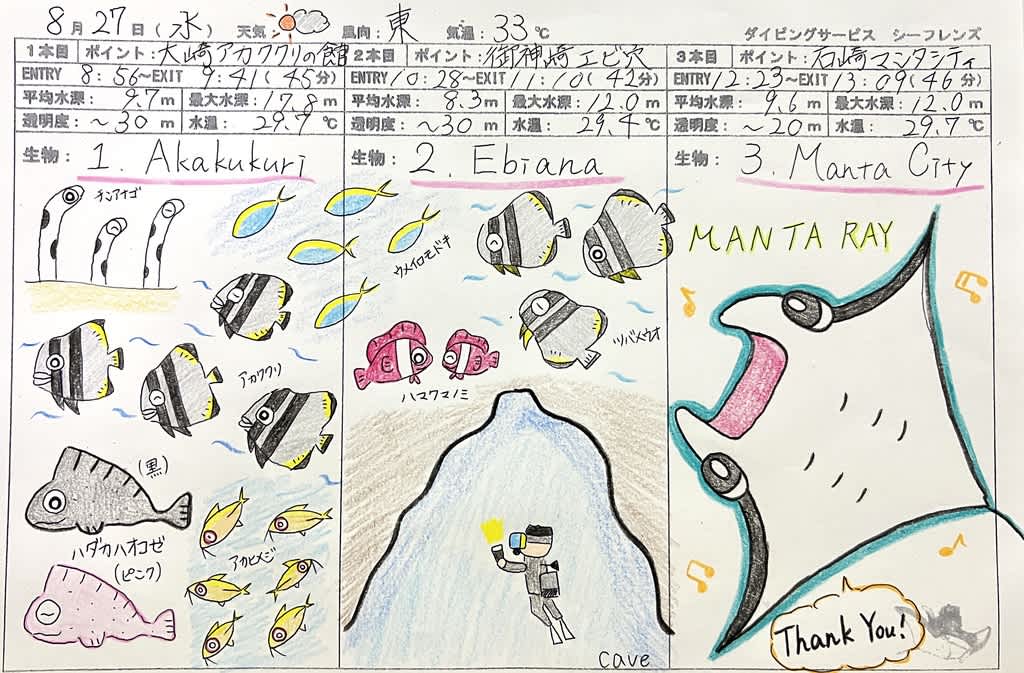 8月27日(水) 天気: 風向: 東 気温: 33℃ ダイビングサービス シーフレンズ
1本目 ポイント: 大崎アカククリの館
ENTRY 8:56~EXIT 9:41(45分)
平均水深: 9.7m 最大水深: 17.8m
透明度: ~30m 水温: 29.7℃
生物: 1. Akakukuri
チンアナゴ
アカククリ
(黒)
ハダカハオコゼ
(ピンク)
アカヒメジ
2本目 ポイント: 御神崎エビ穴
ENTRY 10:28~EXIT 11:10(42分)
平均水深: 8.3m 最大水深: 12.0m
透明度: ~30m 水温: 29.4℃
生物: 2. Ebiana
ウメイロモドキ
ツバメウオ
ハマクマノミ
cave
3本目 ポイント: 石崎マンタシティ
ENTRY 12:23~EXIT 13:09(46分)
平均水深: 9.6m 最大水深: 12.0m
透明度: ~20m 水温: 29.7℃
生物: 3. Manta City
MANTA RAY
Thank You!